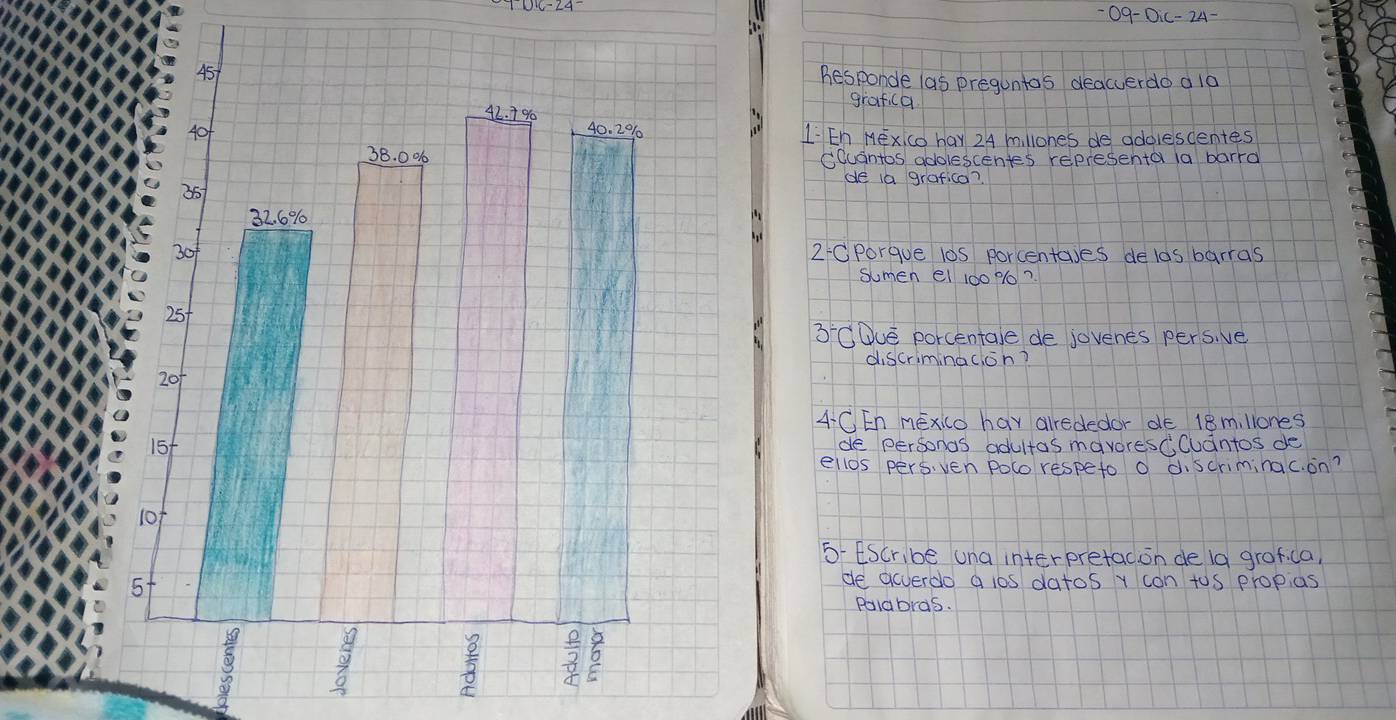 45
40
35
30
25
20
15
10
5
32.6%
38.0%
42.7%
40.2%
Jovenes
Adultos
Adulto
mayor
-09-Dic-24-
Responde las preguntas deacuerdo a la
grafica.
1- En México hay 24 millones de adolescentes
¿Cuántos adolescentes representa la barra
de la grafica?
2-¿Porque los porcentajes de las barras
sumen el 100%?
3-¿Qué porcentaje de jovenes persive
discriminación?
4-¿En México hay alrededor de 18 millones
de personas adultas mayores ¿Cuántos de
ellos persiven poco respeto o discriminación?
5- Escribe una interpretacón de la grafica,
de acuerdo a los datos y con tus propias
palabras.